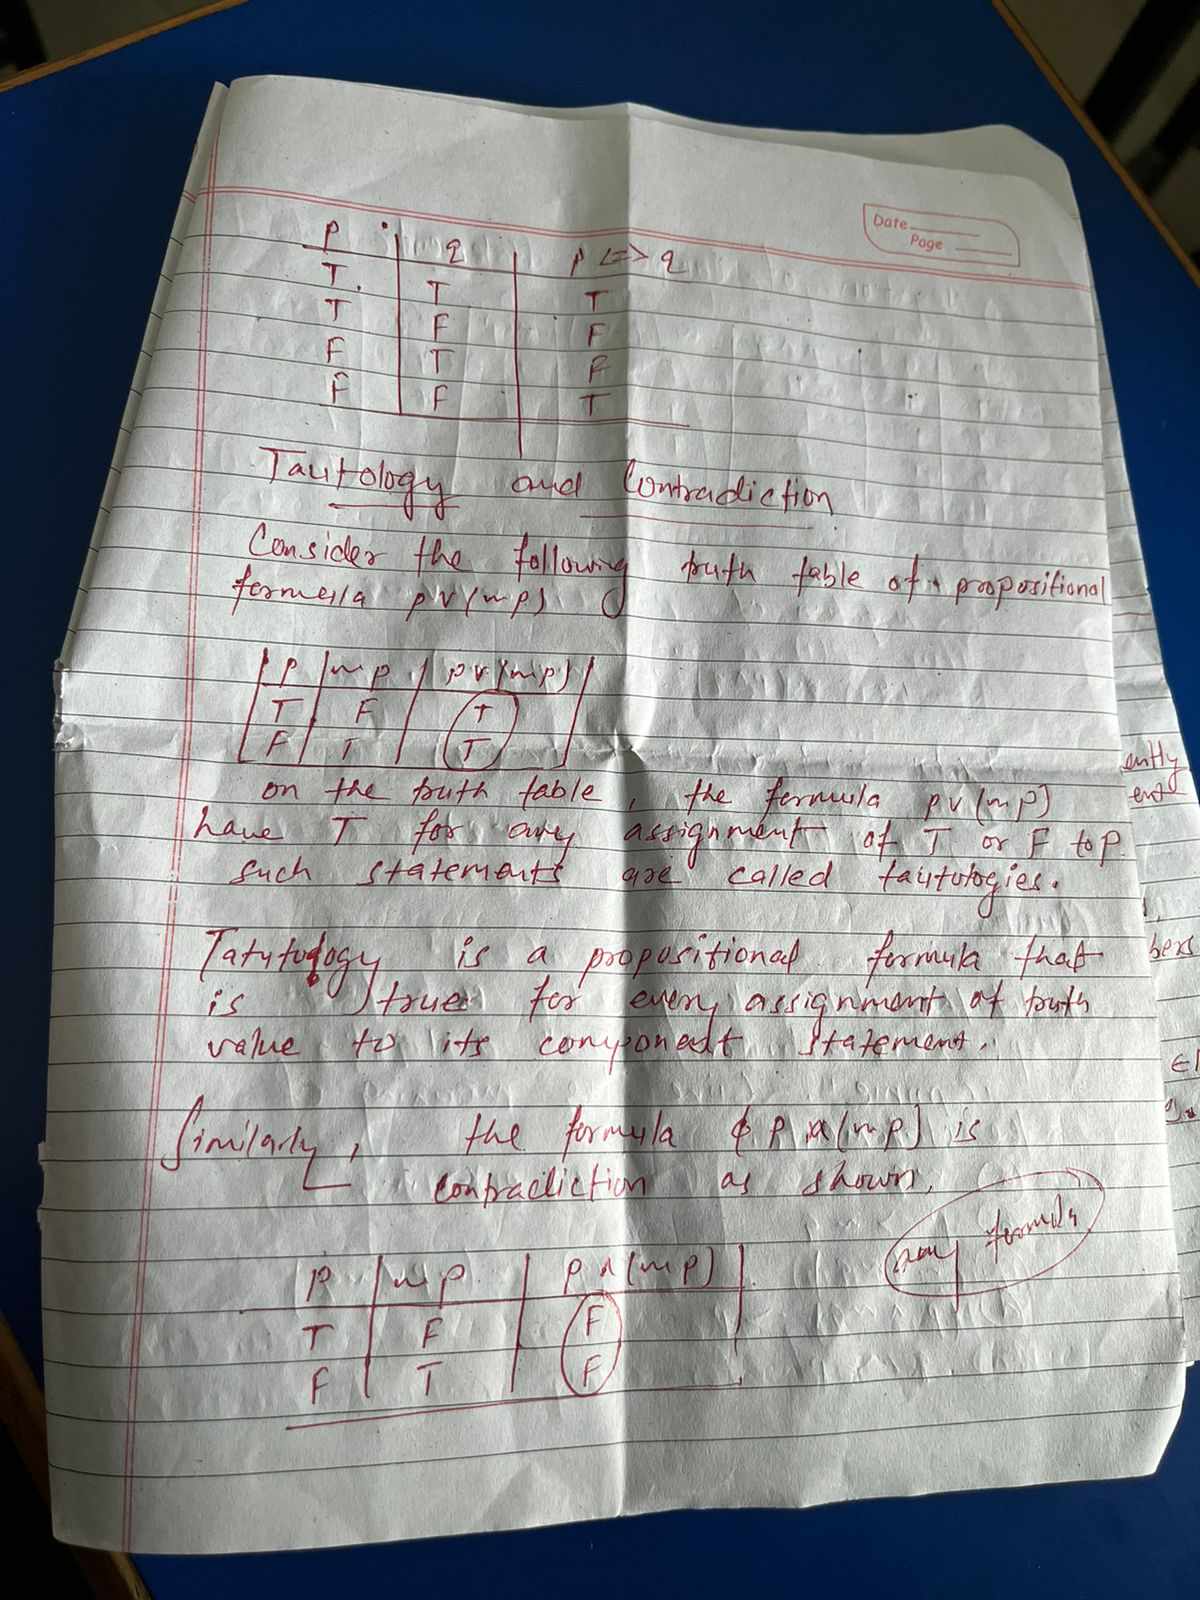 Date
Page
P q p <=> q
T T T
T F F
F T F
F F T
Tautology and Contradiction
Consider the following truth table of propositional
formula p v (~p)
p ~p p v (~p)
T F T
F T T
on the truth table, the formula p v (~p)
have T for any assignment of T or F to P.
such statements are called tautologies.
Tatutology is a propositional formula that
is true for every assignment of truth
value to its component statement.
Similarly, the formula p ∧ (~p) is
contradiction as shown.
any formula
p ~p p ∧ (~p)
T F F
F T F
ently
bers